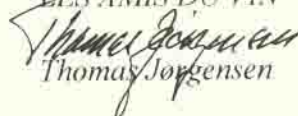 LES AMIS DU VIN
Thomas Jørgensen
Thomas Jørgensen